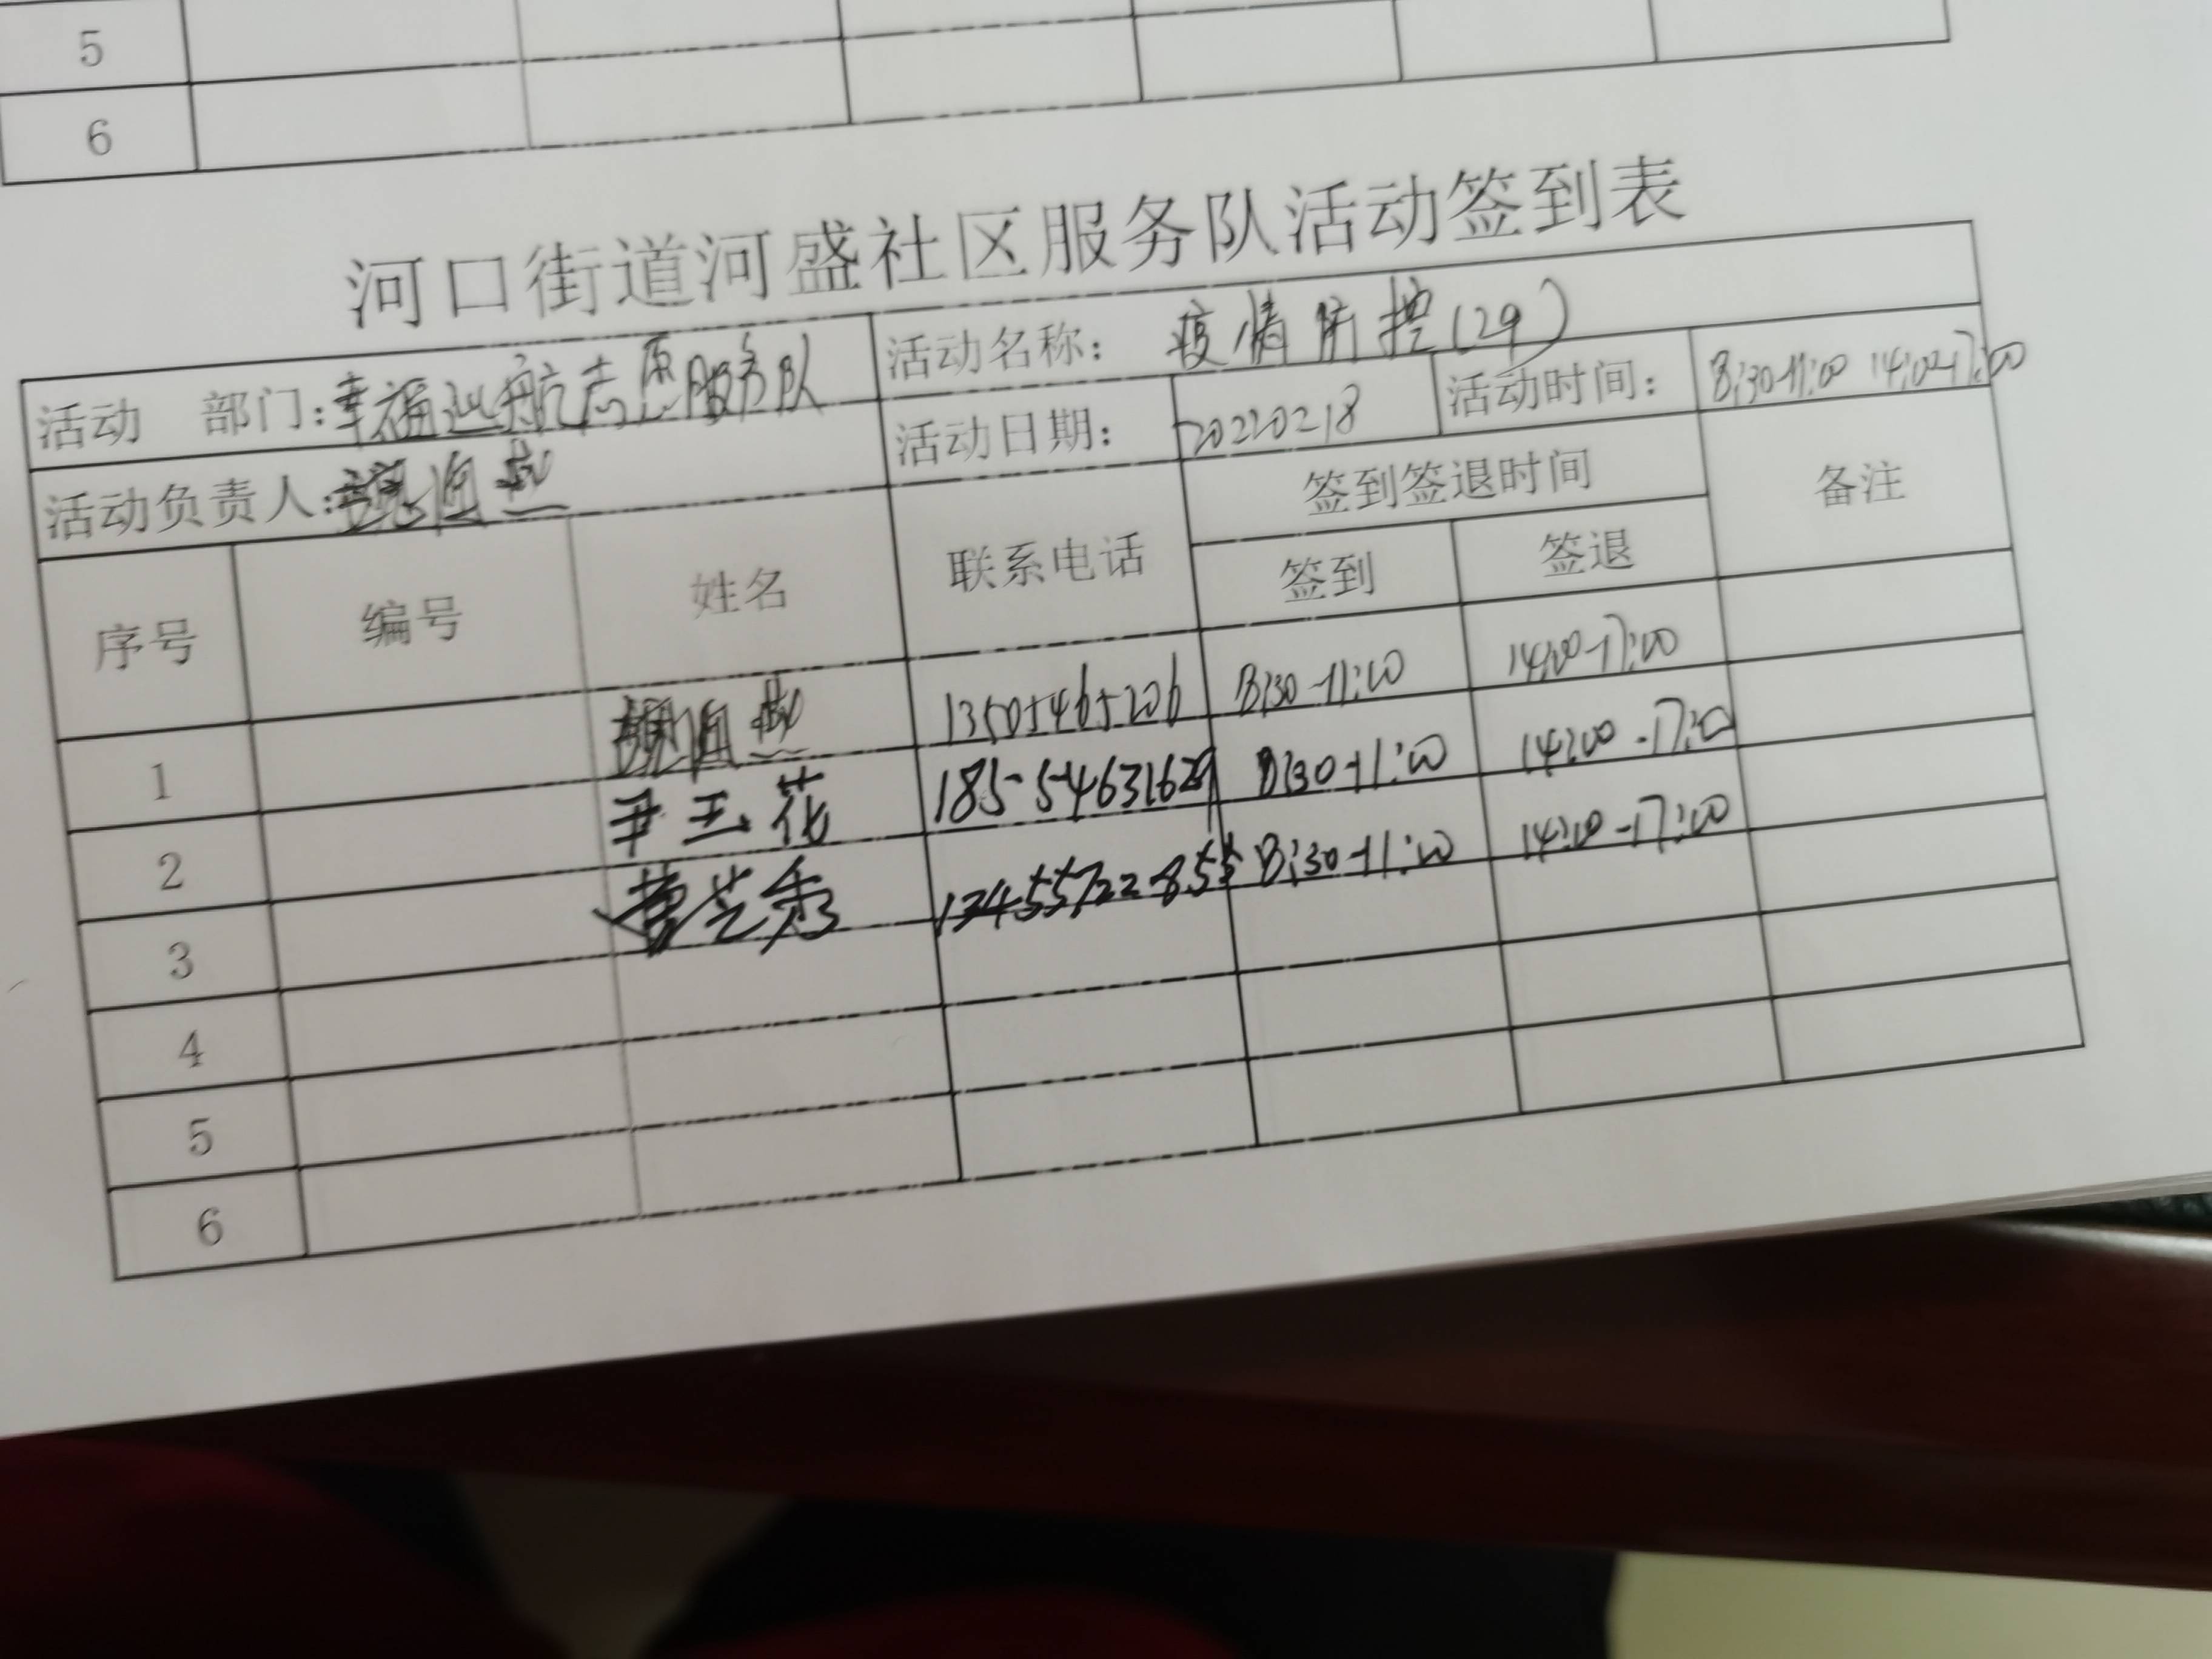 5
6
河口街道河盛社区服务队活动签到表
活动 部门:幸福巡航志愿服务队 活动名称: 疫情防控(29)
活动负责人: 活动日期: 20220218 活动时间: 8:30-11:00 14:00-17:00
序号 编号 姓名 联系电话 签到签退时间 备注
签到 签退
1 13505465206 8:30-11:00 14:00-17:00
2 尹玉花 18554631629 8:30-11:00 14:00-17:00
3 曹芝秀 13455722855 8:30-11:00 14:00-17:00
4
5
6